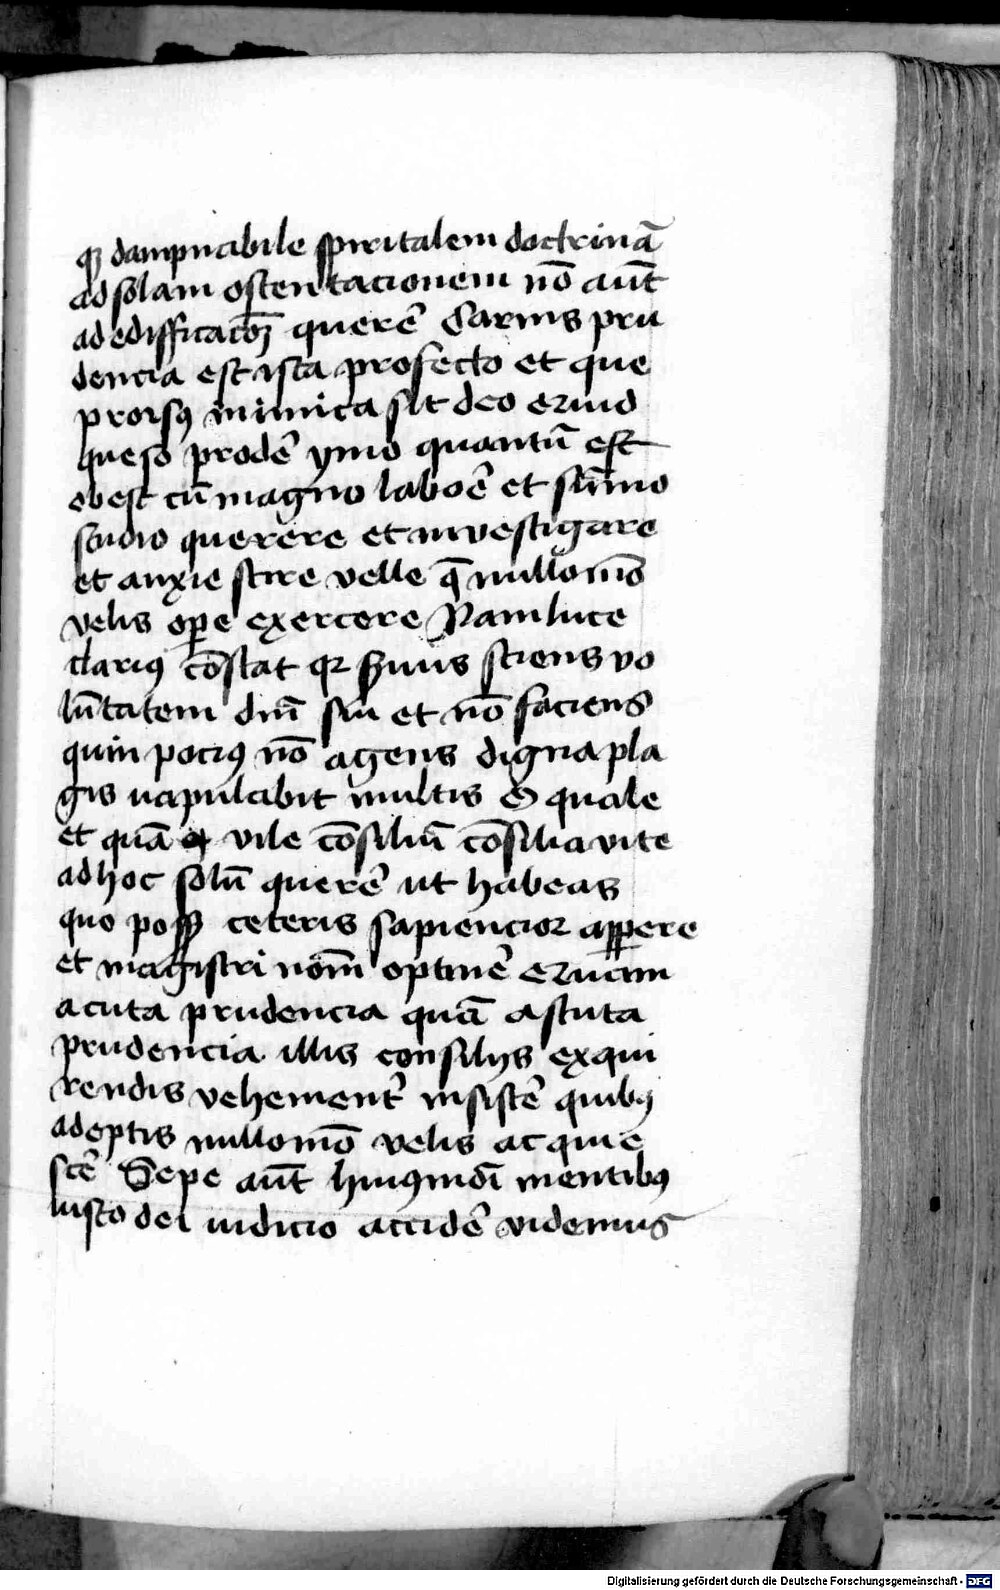 qꝫ dampnabile spiritalem doctrinā
ad solam ostentacionem nō aut̄
ad edifficacōꝫ querē Carnis pru
dencia est ista profecto et que
prorsꝰ inimica sit deo Quid
queso prodē ymo quantū est
obest cū magno laboē et sūmo
studio querere et investigare
et anxie scire velle q̄ nullomō
velis oꝑe exercere Nam luce
clariꝰ cōstat qꝛ suus sciens vo
lūtatem dm̄ sui et nō faciens
quin pociꝰ nō agens digna pla
gis uapulabit multis O quale
et quā vile cōsiliū cōsilia vite
ad hoc solū querē ut habeas
quo possꝫ ceteris sapiencior apꝑere
et magistri nom̄ optinē Quam
acuta prudencia quā astuta
prudencia illis consilijs exqui
rendis vehement̄ insistē quibꝰ
adeptis nullomō velis acquie
scē Sepe aut̄ huiꝰmōi mentibꝰ
iusto dei iudicio accidē videmus
Digitalisierung gefördert durch die Deutsche Forschungsgemeinschaft - DFG